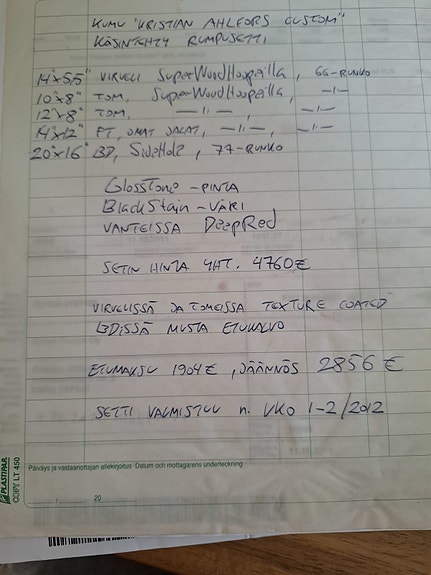 KUMU "KRISTIAN AHLFORS CUSTOM"
KÄSINTEHTY RUMPUSETTI
14"x5,5" VIRVELI SuperWoodHoopeilla, 66-RUNKO
10"x8" TOM, SuperWoodHoopeilla, -ıı-
12"x8" TOM, -ıı-, -ıı-
14"x12" FT, OMAT JALAT, -ıı-, -ıı-
20"x16" BD, SideHole, 77-RUNKO
GlossTone -PINTA
BlackStain -VÄRI
VANTEISSA DeepRed
SETIN HINTA YHT. 4760€
VIRVELISSÄ JA TOMEISSA TEXTURE COATED
BDISSÄ MUSTA ETUKALVO
ETUMAKSU 1904€, JÄÄNNÖS 2856€
SETTI VALMISTUU n. VKO 1-2/2012
Päiväys ja vastaanottajan allekirjoitus Datum och mottagarens underteckning
/ 20
PLASTIPAP
COPY LT 450